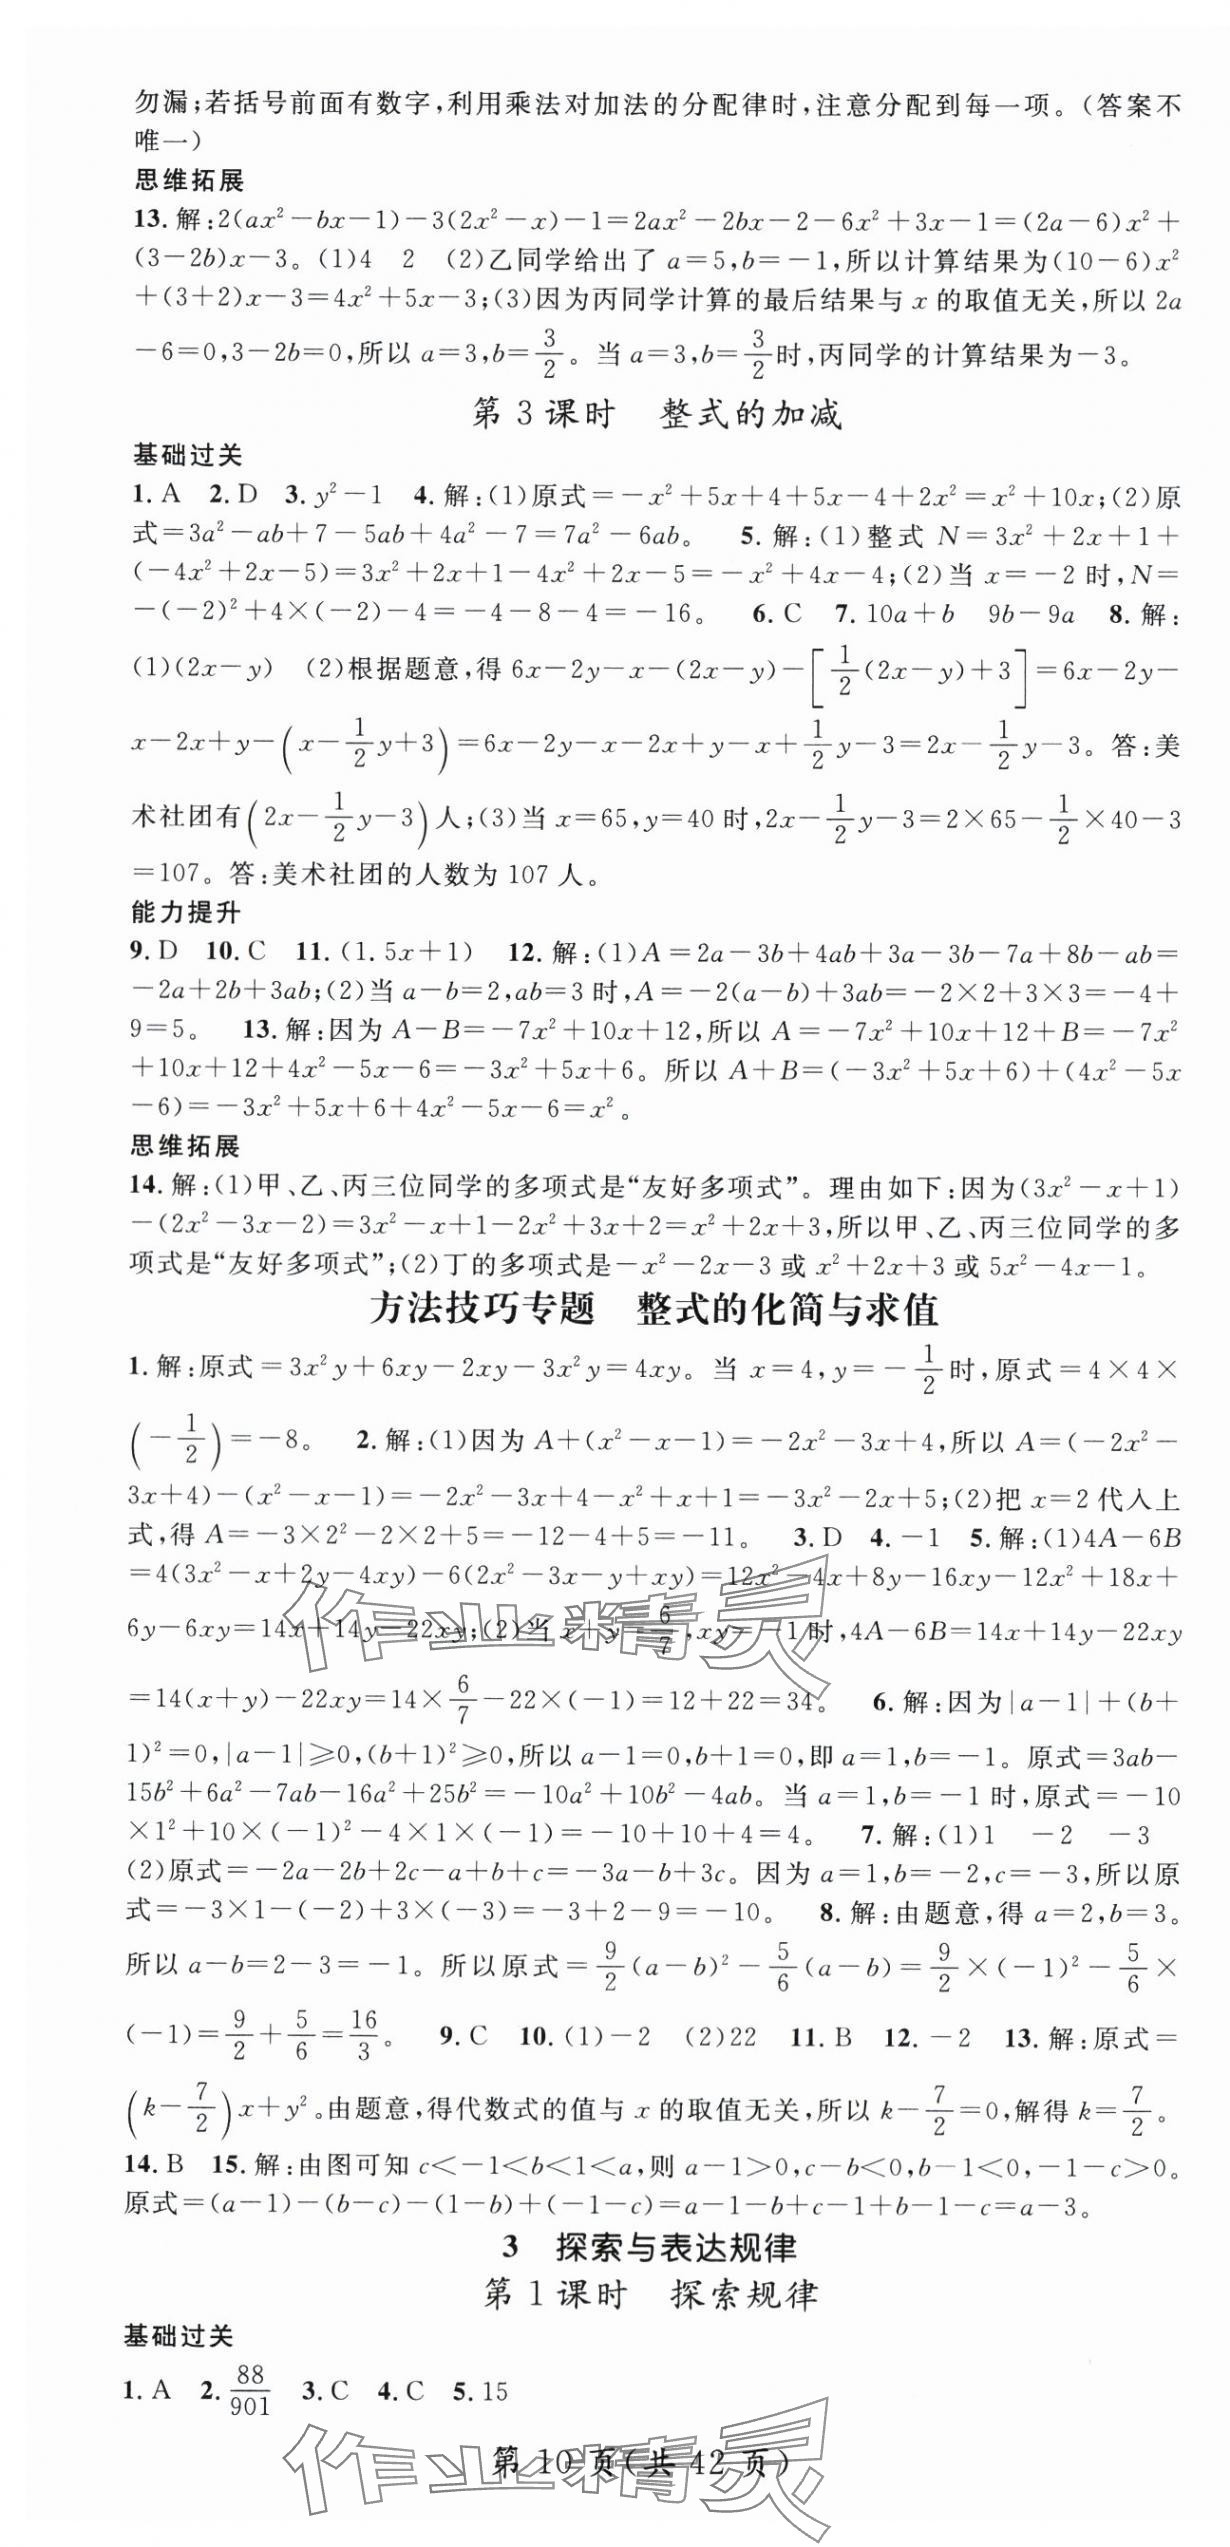 勿漏;若括号前面有数字,利用乘法对加法的分配律时,注意分配到每一项。(答案不
唯一)
思维拓展
13. 解:2(ax²-bx-1)-3(2x²-x)-1=2ax²-2bx-2-6x²+3x-1=(2a-6)x²+
(3-2b)x-3。(1)4 2 (2)乙同学给出了 a=5,b=-1,所以计算结果为(10-6)x²
+(3+2)x-3=4x²+5x-3;(3)因为丙同学计算的最后结果与 x 的取值无关,所以 2a
-6=0,3-2b=0,所以 a=3,b=3/2。当 a=3,b=3/2时,丙同学的计算结果为-3。
第 3 课时 整式的加减
基础过关
1. A 2. D 3. y²-1 4. 解:(1)原式=-x²+5x+4+5x-4+2x²=x²+10x;(2)原
式=3a²-ab+7-5ab+4a²-7=7a²-6ab。 5. 解:(1)整式 N=3x²+2x+1+
(-4x²+2x-5)=3x²+2x+1-4x²+2x-5=-x²+4x-4;(2)当 x=-2 时,N=
-(-2)²+4×(-2)-4=-4-8-4=-16。 6. C 7. 10a+b 9b-9a 8. 解:
(1)(2x-y) (2)根据题意,得 6x-2y-x-(2x-y)-[1/2(2x-y)+3]=6x-2y-
x-2x+y-(x-1/2y+3)=6x-2y-x-2x+y-x+1/2y-3=2x-1/2y-3。答:美
术社团有(2x-1/2y-3)人;(3)当 x=65,y=40 时,2x-1/2y-3=2×65-1/2×40-3
=107。答:美术社团的人数为 107 人。
能力提升
9. D 10. C 11. (1. 5x+1) 12. 解:(1)A=2a-3b+4ab+3a-3b-7a+8b-ab=
-2a+2b+3ab;(2)当 a-b=2,ab=3 时,A=-2(a-b)+3ab=-2×2+3×3=-4+
9=5。 13. 解:因为 A-B=-7x²+10x+12,所以 A=-7x²+10x+12+B=-7x²
+10x+12+4x²-5x-6=-3x²+5x+6。所以 A+B=(-3x²+5x+6)+(4x²-5x
-6)=-3x²+5x+6+4x²-5x-6=x²。
思维拓展
14. 解:(1)甲、乙、丙三位同学的多项式是“友好多项式”。理由如下:因为(3x²-x+1)
-(2x²-3x-2)=3x²-x+1-2x²+3x+2=x²+2x+3,所以甲、乙、丙三位同学的多
项式是“友好多项式”;(2)丁的多项式是-x²-2x-3 或 x²+2x+3 或 5x²-4x-1。
方法技巧专题 整式的化简与求值
1. 解:原式=3x²y+6xy-2xy-3x²y=4xy。当 x=4,y=-1/2时,原式=4×4×
(-1/2)=-8。 2. 解:(1)因为 A+(x²-x-1)=-2x²-3x+4,所以 A=(-2x²-
3x+4)-(x²-x-1)=-2x²-3x+4-x²+x+1=-3x²-2x+5;(2)把 x=2 代入上
式,得 A=-3×2²-2×2+5=-12-4+5=-11。 3. D 4. -1 5. 解:(1)4A-6B
=4(3x²-x+2y-4xy)-6(2x²-3x-y+xy)=12x²-4x+8y-16xy-12x²+18x+
6y-6xy=14x+14y-22xy;(2)当 x+y=6/7,xy=-1 时,4A-6B=14x+14y-22xy
=14(x+y)-22xy=14×6/7-22×(-1)=12+22=34。 6. 解:因为|a-1|+(b+
1)²=0,|a-1|≥0,(b+1)²≥0,所以 a-1=0,b+1=0,即 a=1,b=-1。原式=3ab-
15b²+6a²-7ab-16a²+25b²=-10a²+10b²-4ab。当 a=1,b=-1 时,原式=-10
×1²+10×(-1)²-4×1×(-1)=-10+10+4=4。 7. 解:(1)1 -2 -3
(2)原式=-2a-2b+2c-a+b+c=-3a-b+3c。因为 a=1,b=-2,c=-3,所以原
式=-3×1-(-2)+3×(-3)=-3+2-9=-10。 8. 解:由题意,得 a=2,b=3。
所以 a-b=2-3=-1。所以原式=9/2(a-b)²-5/6(a-b)=9/2×(-1)²-5/6×
(-1)=9/2+5/6=16/3。 9. C 10. (1)-2 (2)22 11. B 12. -2 13. 解:原式=
(k-7/2)x+y²。由题意,得代数式的值与 x 的取值无关,所以 k-7/2=0,解得 k=7/2。
14. B 15. 解:由图可知 c<-1<b<1<a,则 a-1>0,c-b<0,b-1<0,-1-c>0。
原式=(a-1)-(b-c)-(1-b)+(-1-c)=a-1-b+c-1+b-1-c=a-3。
3 探索与表达规律
第 1 课时 探索规律
基础过关
1. A 2. 88/901 3. C 4. C 5. 15
第 10 页(共 42 页)
作业精灵
作业精灵